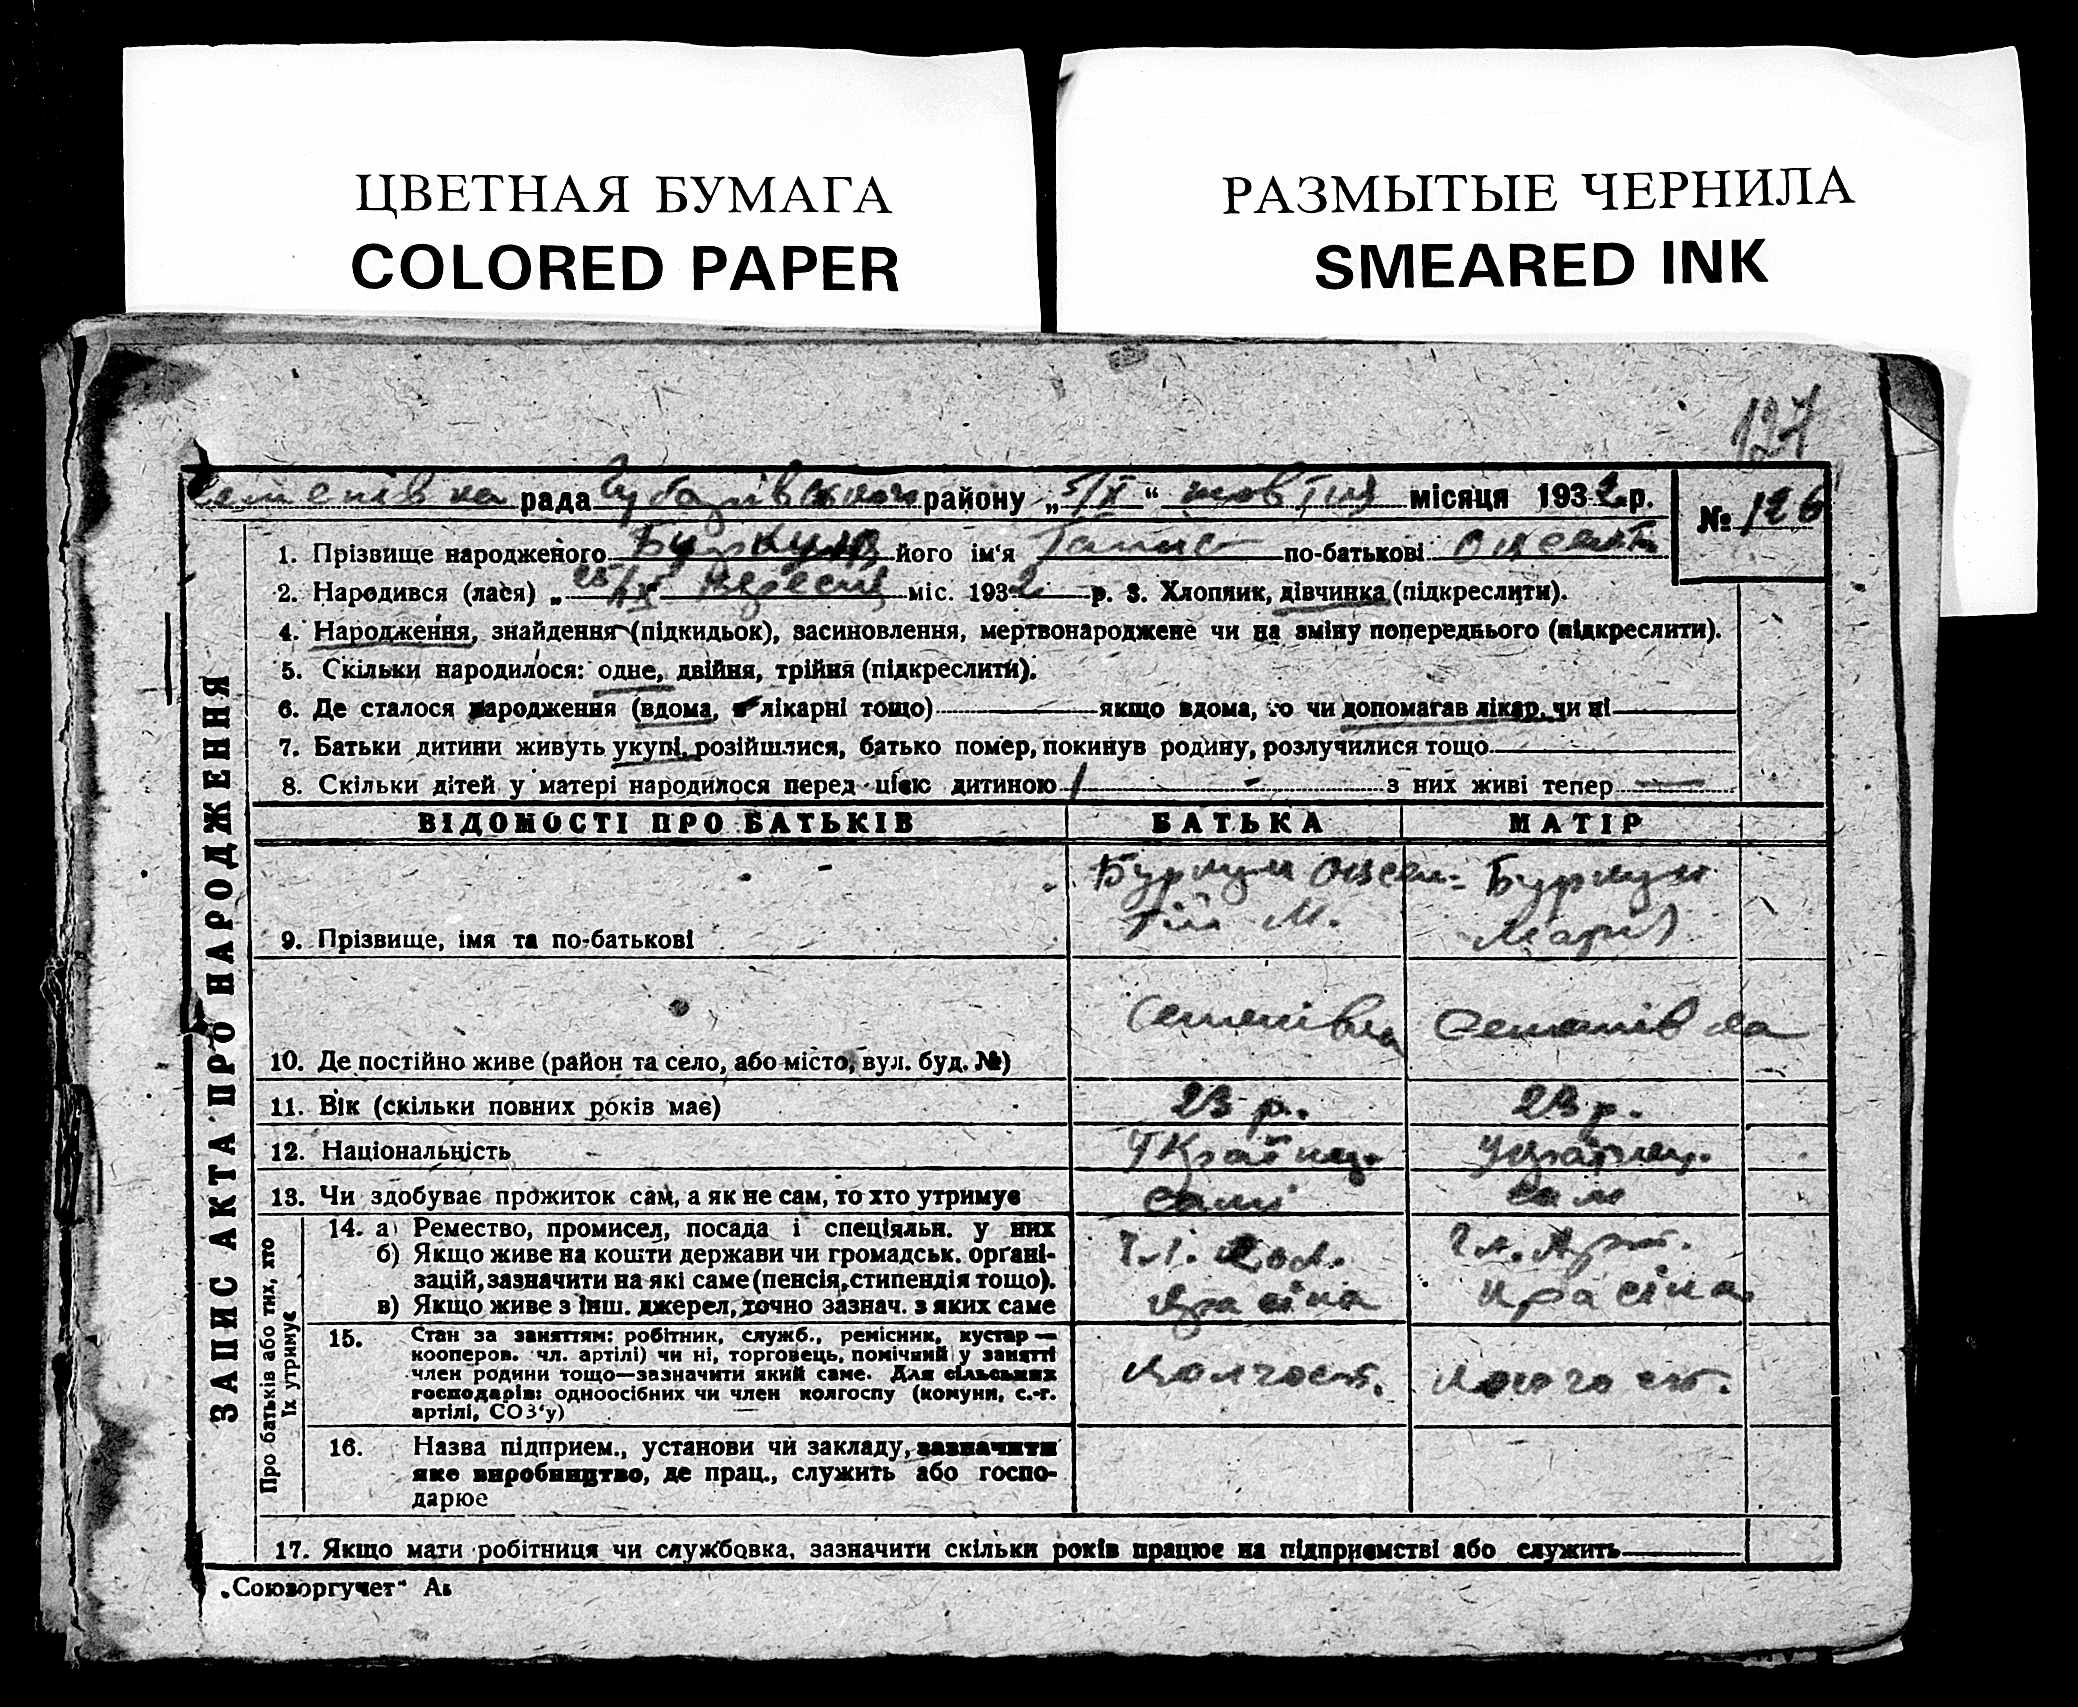 ЦВЕТНАЯ БУМАГА
COLORED PAPER
РАЗМЫТЫЕ ЧЕРНИЛА
SMEARED INK
127
Семенівка рада Губарівського району „5/X“ жовтня місяця 1932 р.
№ 126
1. Прізвище народженого його ім'я по-батькові
2. Народився (лася) „ /IX вересня міс. 1932 р. 3. Хлопчик, дівчинка (підкреслити).
4. Народження, знайдення (підкидьок), засиновлення, мертвонароджене чи на зміну попереднього (підкреслити).
5. Скільки народилося: одне, двійня, трійня (підкреслити).
6. Де сталося народження (вдома, в лікарні тощо) якщо вдома, то чи допомагав лікар, чи ні
7. Батьки дитини живуть укупі, розійшлися, батько помер, покинув родину, розлучилися тощо
8. Скільки дітей у матері народилося перед цією дитиною 1 з них живі тепер —
ВІДОМОСТІ ПРО БАТЬКІВ БАТЬКА МАТІР
9. Прізвище, імя та по-батькові
М. Мария
10. Де постійно живе (район та село, або місто, вул. буд. №) Семенівка Семенівка
11. Вік (скільки повних років має) 23 р. 23 р.
12. Національність Україн. Україн.
13. Чи здобуває прожиток сам, а як не сам, то хто утримує сам сам
14. а) Ремество, промисел, посада і спеціяльн. у них
б) Якщо живе на кошти держави чи громадськ. органі-
зацій, зазначити на які саме (пенсія, стипендія тощо).
в) Якщо живе з інш. джерел, точно зазнач. з яких саме
Чл. Арт.
Красіна Красіна
15. Стан за заняттям: робітник, служб., ремісник, кустар —
кооперов. чл. артілі) чи ні, торговець, помічний у занятті
член родини тощо—зазначити який саме. Для сільських
господарів: одноосібних чи член колгоспу (комуни, с.-г.
артілі, СОЗ'у)
колгосп. колгосп.
16. Назва підприєм., установи чи закладу, зазначити
яке виробництво, де прац., служить або госпо-
дарює
17. Якщо мати робітниця чи службовка, зазначити скільки років працює на підприємстві або служить
ЗАПИС АКТА ПРО НАРОДЖЕННЯ
Про батьків або тих, хто
їх утримує
„Союзоргучет“